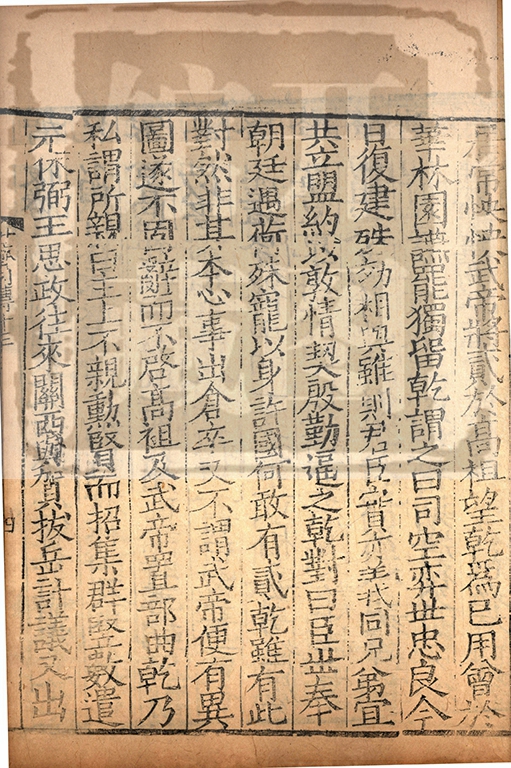 居常怏怏武帝將貳於髙祖望乾爲已用曾於
華林園讌罷獨留乾謂之曰司空弈世忠良今
日復建殊効相與雖則君臣實亦義同兄弟宜
共立盟約以敦情契殷勤逼之乾對曰臣世奉
朝廷遇荷殊寵以身許國何敢有貳乾雖有此
對然非其本心事出倉卒又不謂武帝便有異
圖遂不固辭而不啓髙祖及武帝置部曲乾乃
私謂所親曰主上不親勳賢而招集群豎數遣
元休弼王思政往來關西與賀拔岳計議又出
列傳十三
四